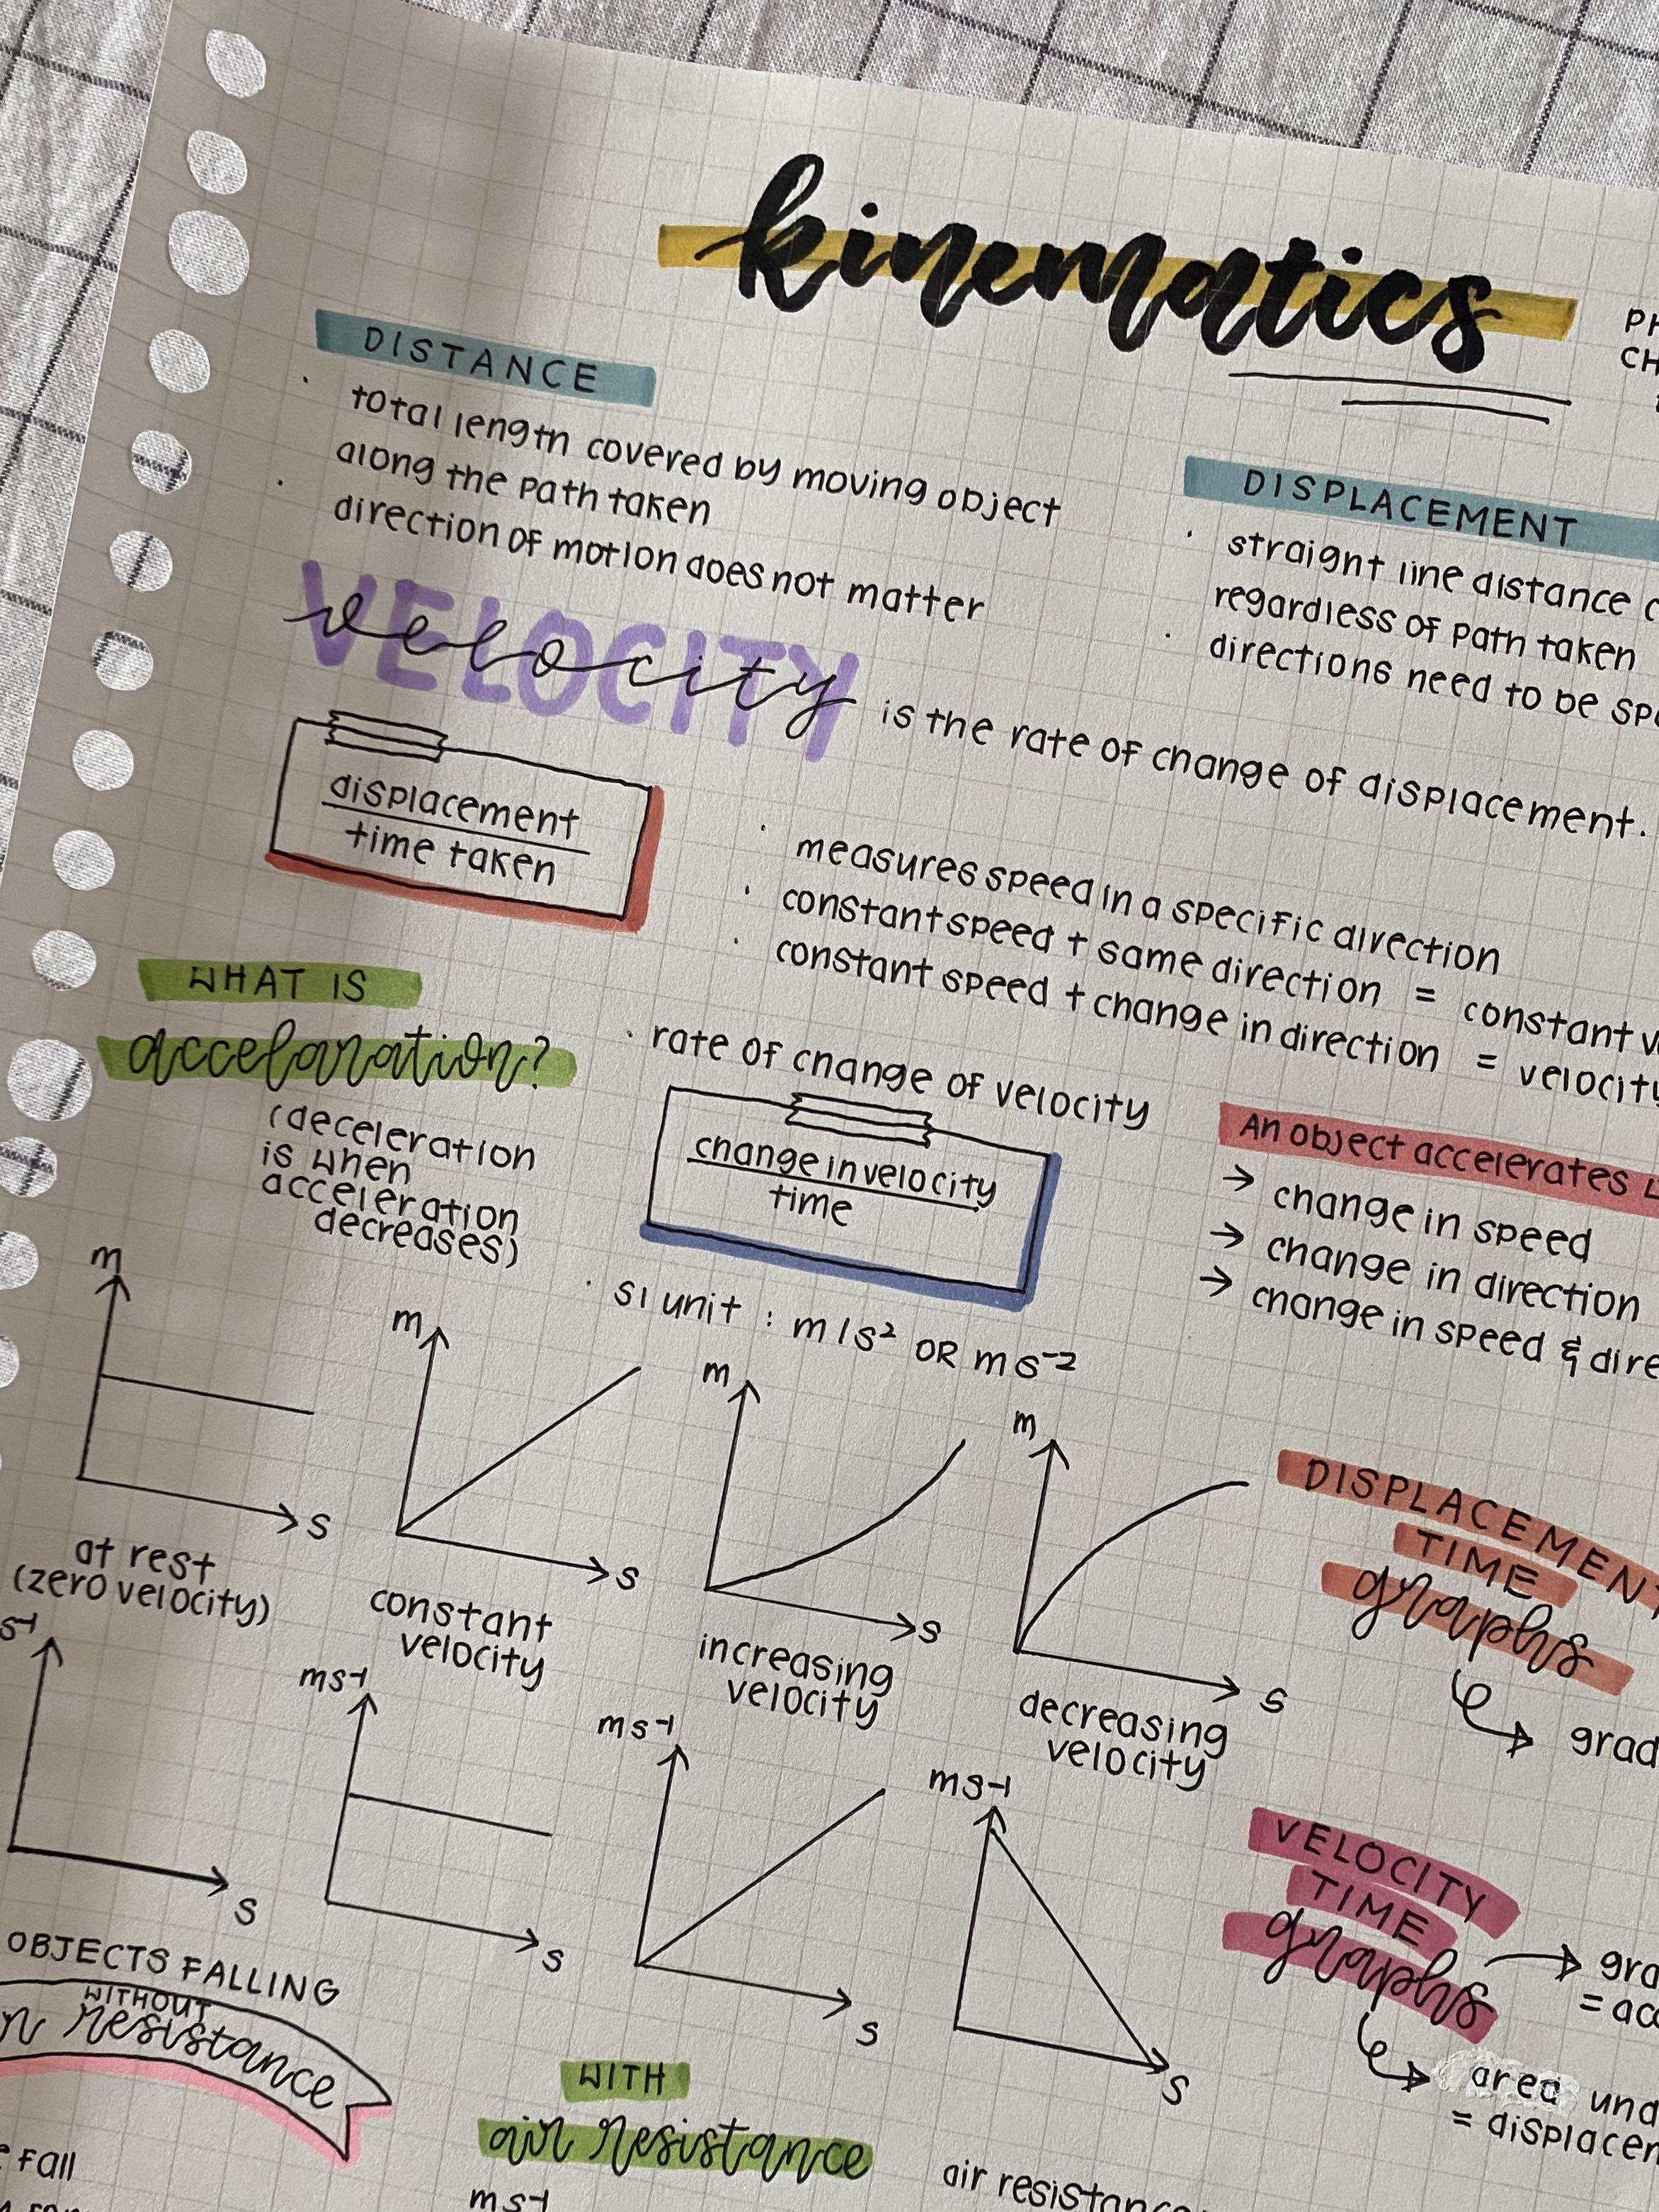 kinematics
PH
CH
DISTANCE
· total length covered by moving object
along the path taken
· direction of motion does not matter
DISPLACEMENT
· straight line distance
regardless of path taken
· directions need to be
velocity
VELOCITY
is the rate of change of displacement.
displacement
time taken
· measures speed in a specific direction
· constant speed + same direction = constant
· constant speed + change in direction = velocity
WHAT IS
accelaration?
(deceleration
is when
acceleration
decreases)
· rate of change of velocity
change in velocity
time
· SI unit : m/s² OR ms⁻²
An object accelerates
→ change in speed
→ change in direction
→ change in speed &
m
s
at rest
(zero velocity)
m
s
constant
velocity
m
s
increasing
velocity
m
s
decreasing
velocity
DISPLACEMENT
TIME
graphs
grad
s⁻¹
s
ms⁻¹
s
ms⁻¹
s
ms⁻¹
s
VELOCITY
TIME
graphs
gra
= acc
area und
= displacem
OBJECTS FALLING
WITHOUT
resistance
fall
WITH
air resistance
ms⁻¹
air resistance